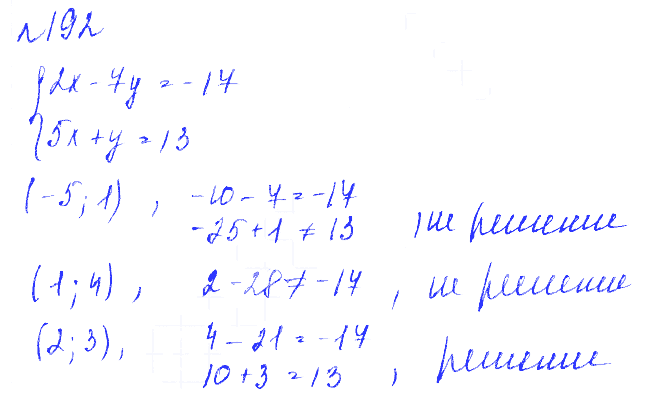 №192
{2x - 7y = -17
{5x + y = 13
(-5; 1), -10 - 7 = -17
-25 + 1 ≠ 13, не решение
(1; 4), 2 - 28 ≠ -17, не решение
(2; 3), 4 - 21 = -17
10 + 3 = 13, решение